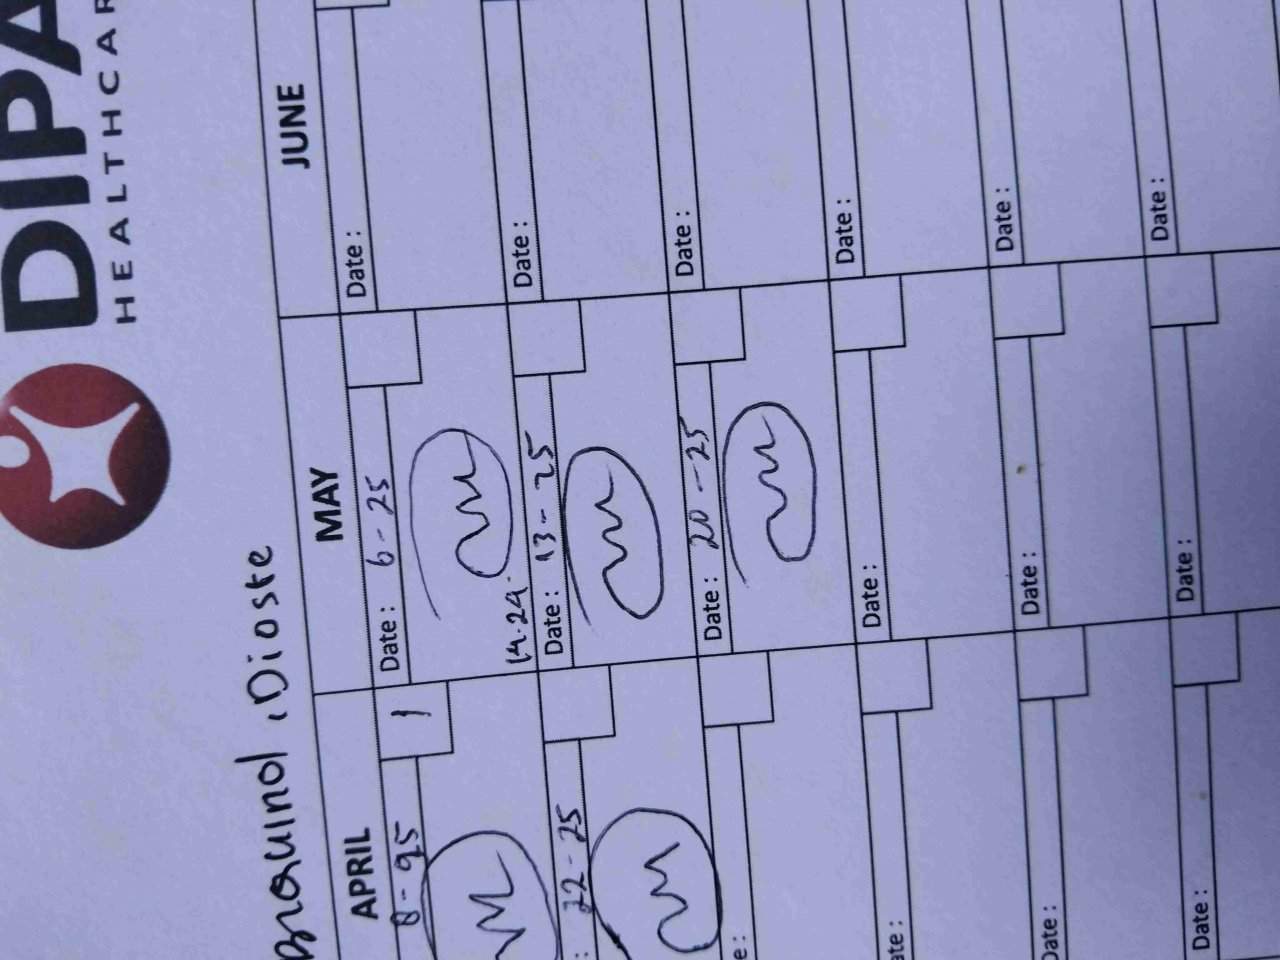 DIPA
HEALTHCAR
Dioste
APRIL MAY JUNE
8-95 1 Date: 6-25 Date:
14.24.
22-25 Date: 13-25 Date:
e: Date: 20-25 Date:
ate: Date: Date:
Date: Date: Date:
Date: Date: Date: